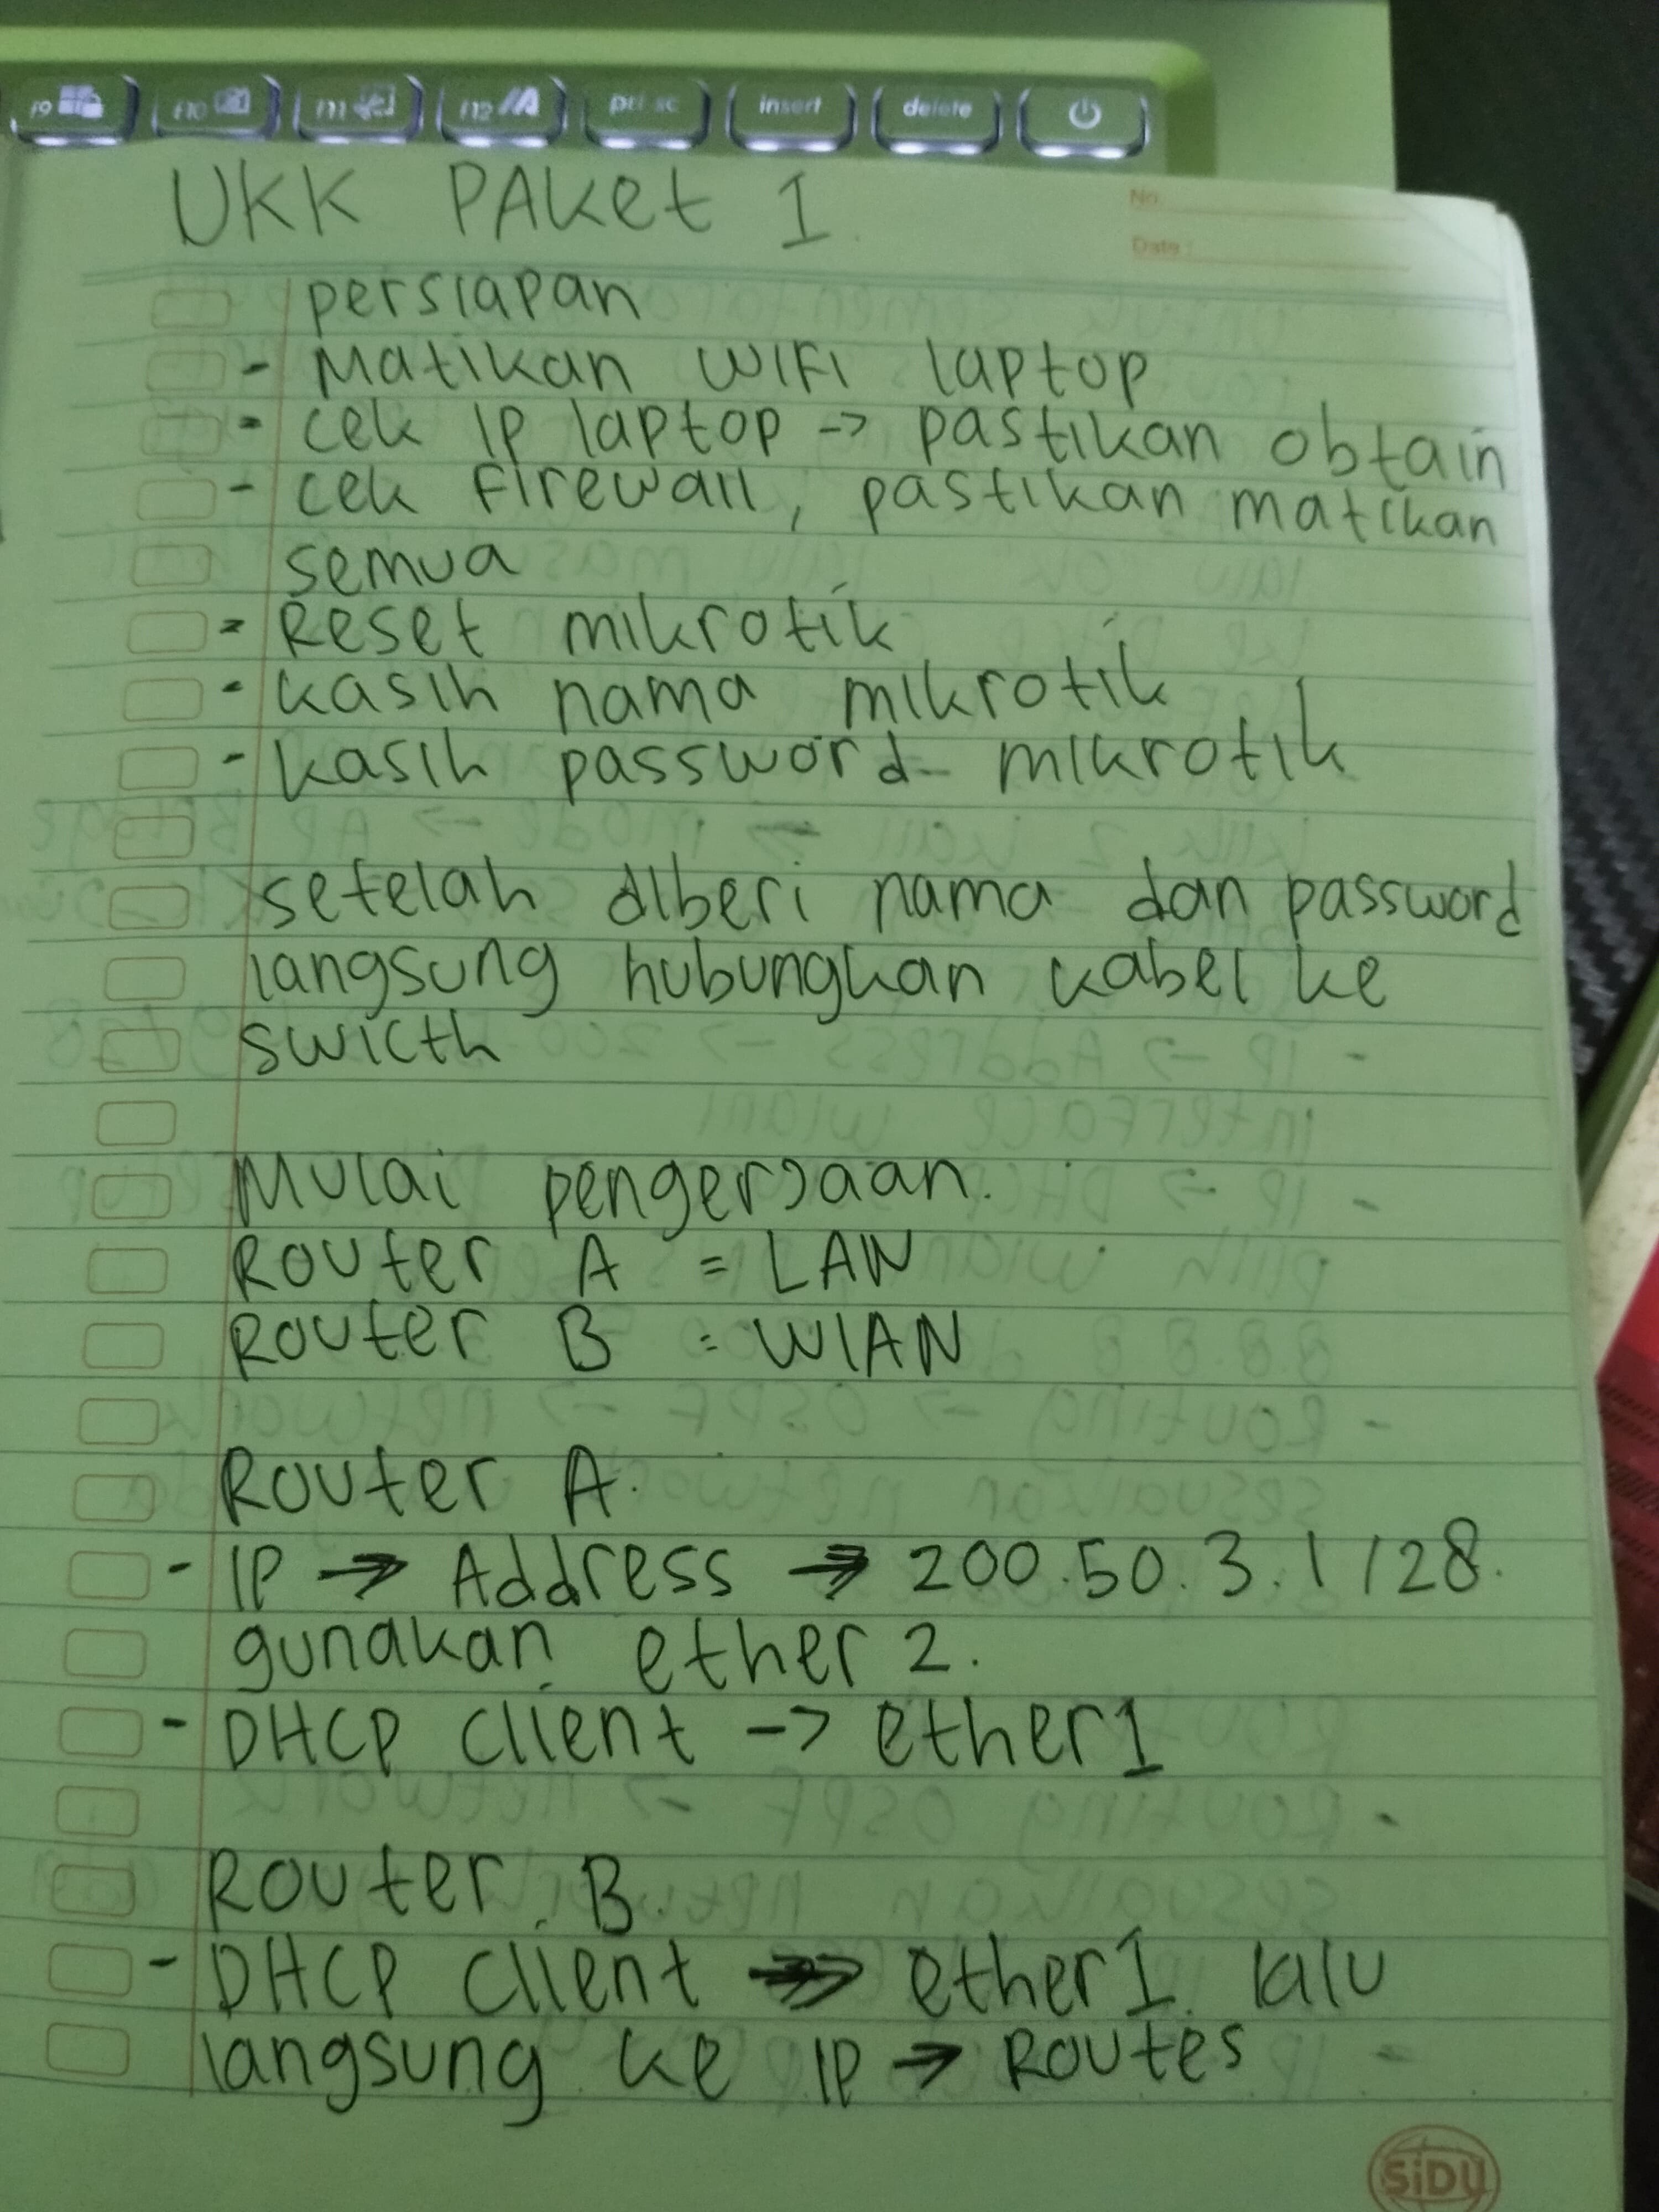 f9
f10
f11
f12
prt sc
insert
delete
UKK PAket 1
No.
Date:
persiapan
- Matikan wiFi laptop
- cek IP laptop -> pastikan obtain
- cek Firewall, pastikan matikan
semua
- Reset mikrotik
- kasih nama mikrotik
- kasih password mikrotik
setelah diberi nama dan password
langsung hubungkan kabel ke
swicth
Mulai pengerjaan.
Router A = LAN
Router B = WLAN
Router A.
- IP → Address → 200.50.3.1/28.
gunakan ether 2.
- DHCP client -> ether1
Router B
- DHCP client → ether1 lalu
langsung ke IP → Routes
SiDU